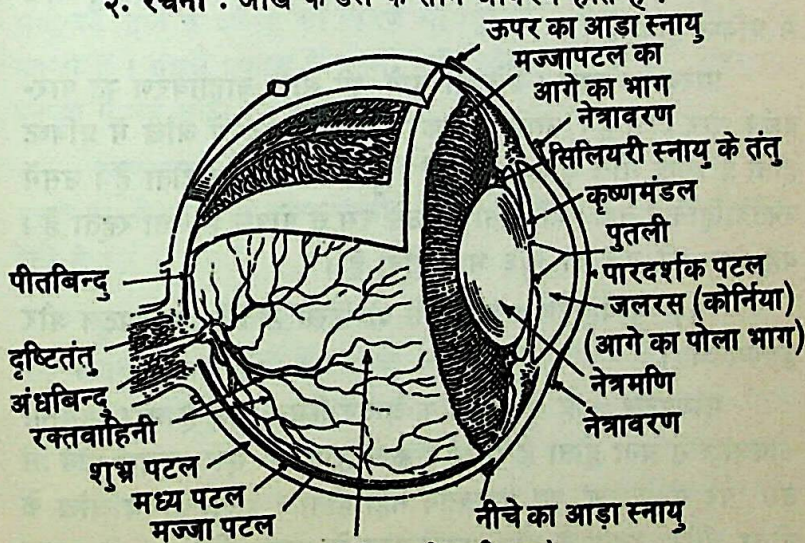 ऊपर का आडा स्नायु
मज्जापटल का
आगे का भाग
नेत्रावरण
सिलियरी स्नायु के तंतु
कृष्णमंडल
पुतली
पारदर्शक पटल
जलरस (कोर्निया)
(आगे का पोला भाग)
नेत्रमणि
नेत्रावरण
नीचे का आड़ा स्नायु
पीतबिन्दु
दृष्टितंतु
अंधबिन्दु
रक्तवाहिनी
शुभ्र पटल
मध्य पटल
मज्जा पटल